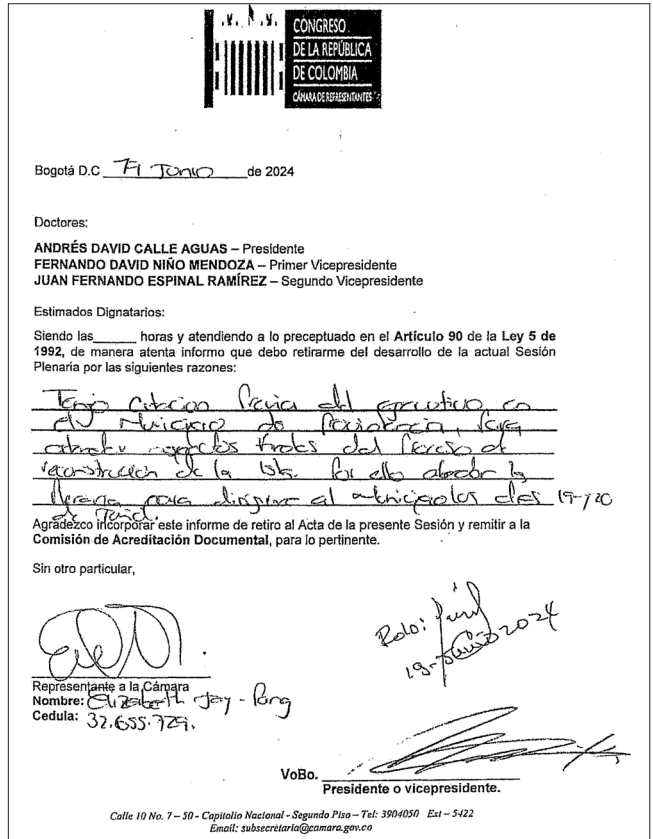 CONGRESO
DE LA REPÚBLICA
DE COLOMBIA
CÁMARA DE REPRESENTANTES
Bogotá D.C Junio de 2024
Doctores:
ANDRÉS DAVID CALLE AGUAS – Presidente
FERNANDO DAVID NIÑO MENDOZA – Primer Vicepresidente
JUAN FERNANDO ESPINAL RAMÍREZ – Segundo Vicepresidente
Estimados Dignatarios:
Siendo las______ horas y atendiendo a lo preceptuado en el Artículo 90 de la Ley 5 de
1992, de manera atenta informo que debo retirarme del desarrollo de la actual Sesión
Plenaria por las siguientes razones:
Tengo citacion Previa del ejecutivo en
el Municipio de Providencia, para
del Proceso de
reconstrucción de la Isla. Por ello la
para al 19-y 20
de Junio.
Agradezco incorporar este informe de retiro al Acta de la presente Sesión y remitir a la
Comisión de Acreditación Documental, para lo pertinente.
Sin otro particular,
19-Junio 2024
Representante a la Cámara
Nombre: Elizabeth Jay-Pang
Cedula: 32.655.729.
VoBo.
Presidente o vicepresidente.
Calle 10 No. 7 – 50 - Capitolio Nacional - Segundo Piso – Tel: 3904050 Ext – 5422
Email: subsecretaria@camara.gov.co